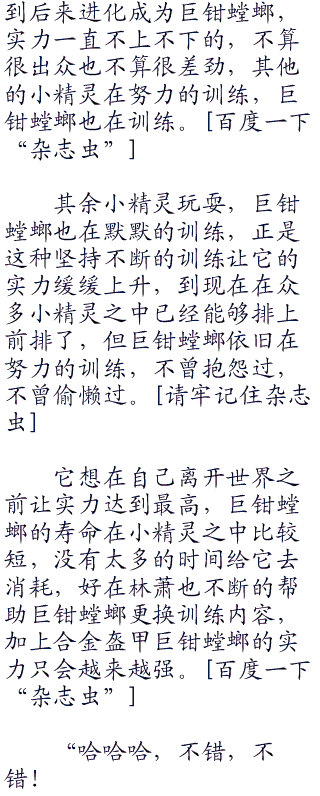 到后来进化成为巨钳螳螂，
实力一直不上不下的，不算
很出众也不算很差劲，其他
的小精灵在努力的训练，巨
钳螳螂也在训练。[百度一下
“杂志虫”]
其余小精灵玩耍，巨钳
螳螂也在默默的训练，正是
这种坚持不断的训练让它的
实力缓缓上升，到现在在众
多小精灵之中已经能够排上
前排了，但巨钳螳螂依旧在
努力的训练，不曾抱怨过，
不曾偷懒过。[请牢记住杂志
虫]
它想在自己离开世界之
前让实力达到最高，巨钳螳
螂的寿命在小精灵之中比较
短，没有太多的时间给它去
消耗，好在林萧也不断的帮
助巨钳螳螂更换训练内容，
加上合金盔甲巨钳螳螂的实
力只会越来越强。[百度一下
“杂志虫”]
“哈哈哈，不错，不
错！